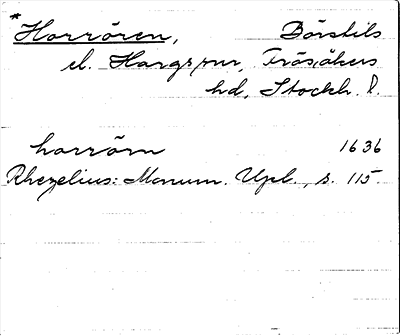 *Horrören, Börstils
el. Hargs snr, Frösåkers
hd, Stockh. l.
horrörn 1636
Rhezelius: Monum. Upl., s. 115